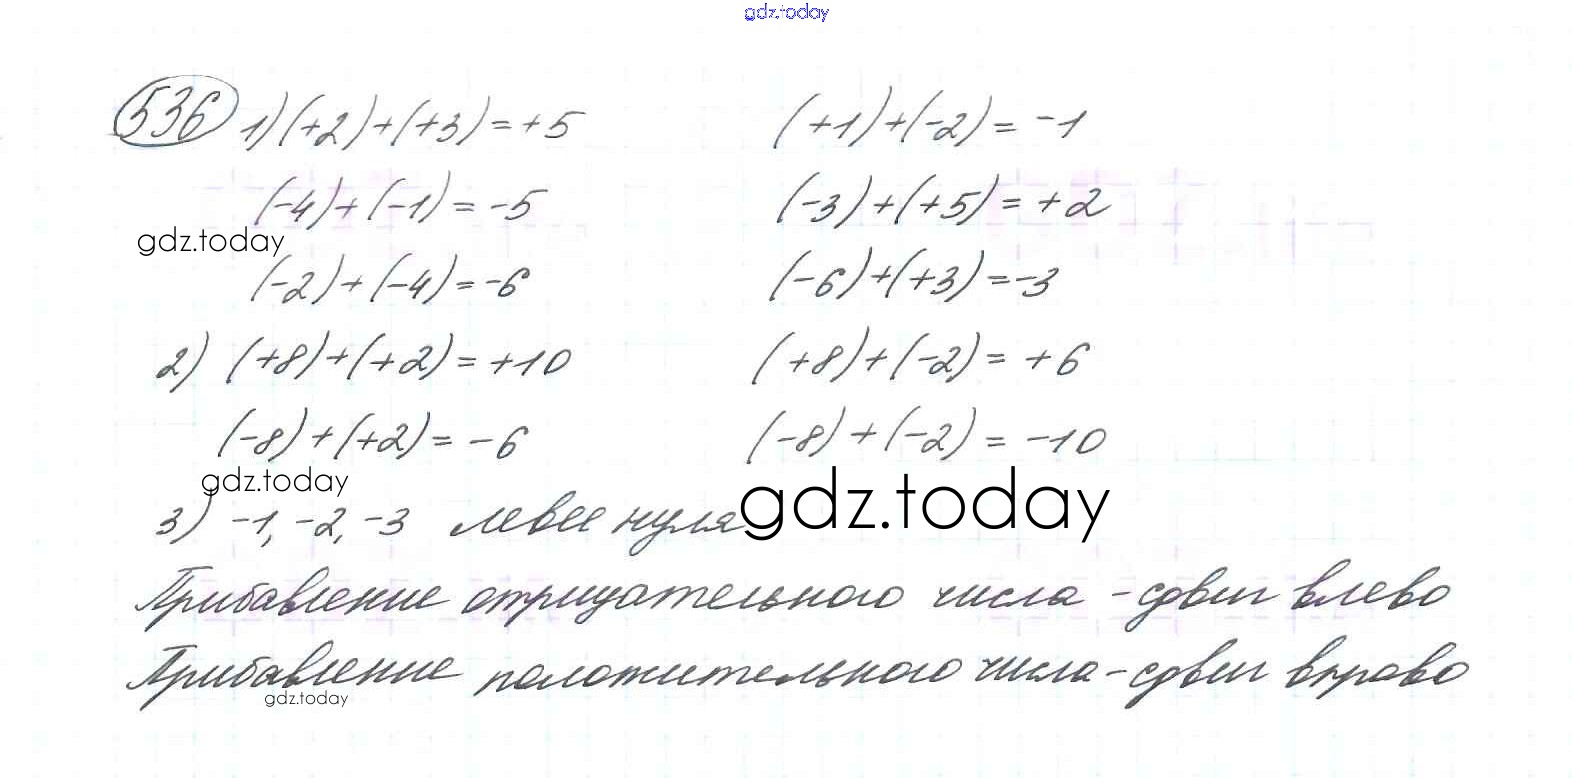 gdz.today
536 1) (+2)+(+3)=+5 (+1)+(-2)= -1
(-4)+(-1)= -5 (-3)+(+5)= +2
gdz.today
(-2)+(-4)= -6 (-6)+(+3)= -3
2) (+8)+(+2)= +10 (+8)+(-2)= +6
(-8)+(+2)= -6 (-8)+(-2)= -10
gdz.today
gdz.today
3) -1, -2, -3 левее нуля
Прибавление отрицательного числа - сдвиг влево
Прибавление положительного числа - сдвиг вправо
gdz.today